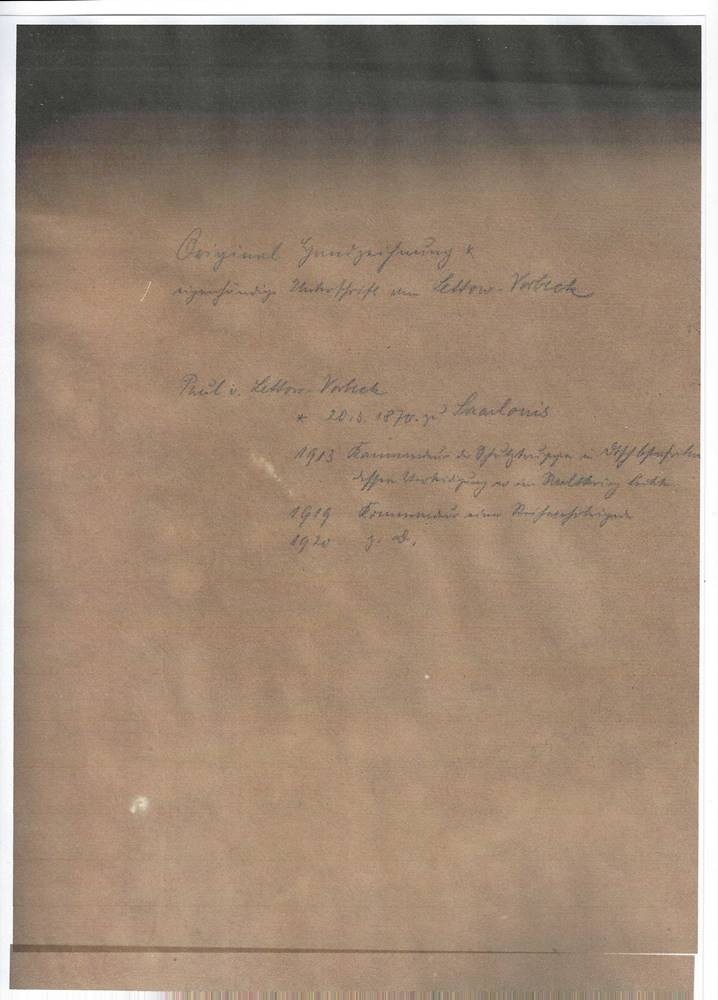 Original Handzeichnung &
eigenhändige Unterschrift von Lettow-Vorbeck
Paul v. Lettow-Vorbeck
* 20.3.1870 zu Saarlouis
1913 Kommandeur d. Schutztruppe in Dtsch Ostafrika
dessen Verteidigung er im Weltkrieg leitete.
1919 Kommandeur einer Reichswehrbrigade
1920 z. D.